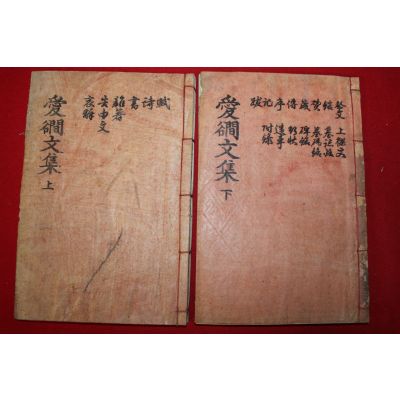 賦
詩
書
雜著
告由文
哀辭
愛磵文集 上
祭文 上樑文
墓誌銘
贊 墓碣銘
箴 碑銘
傳 行狀
序 遺事
記 附錄
跋
愛磵文集 下